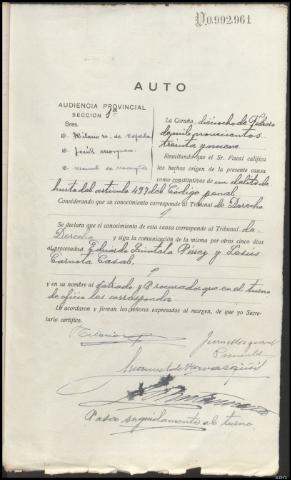 V.0.992.961
AUTO
AUDIENCIA PROVINCIAL
SECCIÓN 1ª
Sres.
La Coruña, dieciocho de Febrero
de mil novecientos
treinta y nueve.
Resultando que el Sr. Fiscal califica
los hechos origen de la presente causa
como constitutivos de un delito de
hurto del artículo 497 del Código penal.
Considerando que su conocimiento corresponde al Tribunal de Derecho
Se declara que el conocimiento de esta causa corresponde al Tribunal de
Derecho y siga la comunicación de la misma por otros cinco días
al procesado Eduardo Quintela Pérez y Jesús
Carnota Casal.
y en su nombre al Letrado y Procurador que en el turno
de oficio les corresponda
Lo acordaron y firman los señores expresados al margen, de que yo Secre-
tario certifico.
Pasa seguidamente al turno.